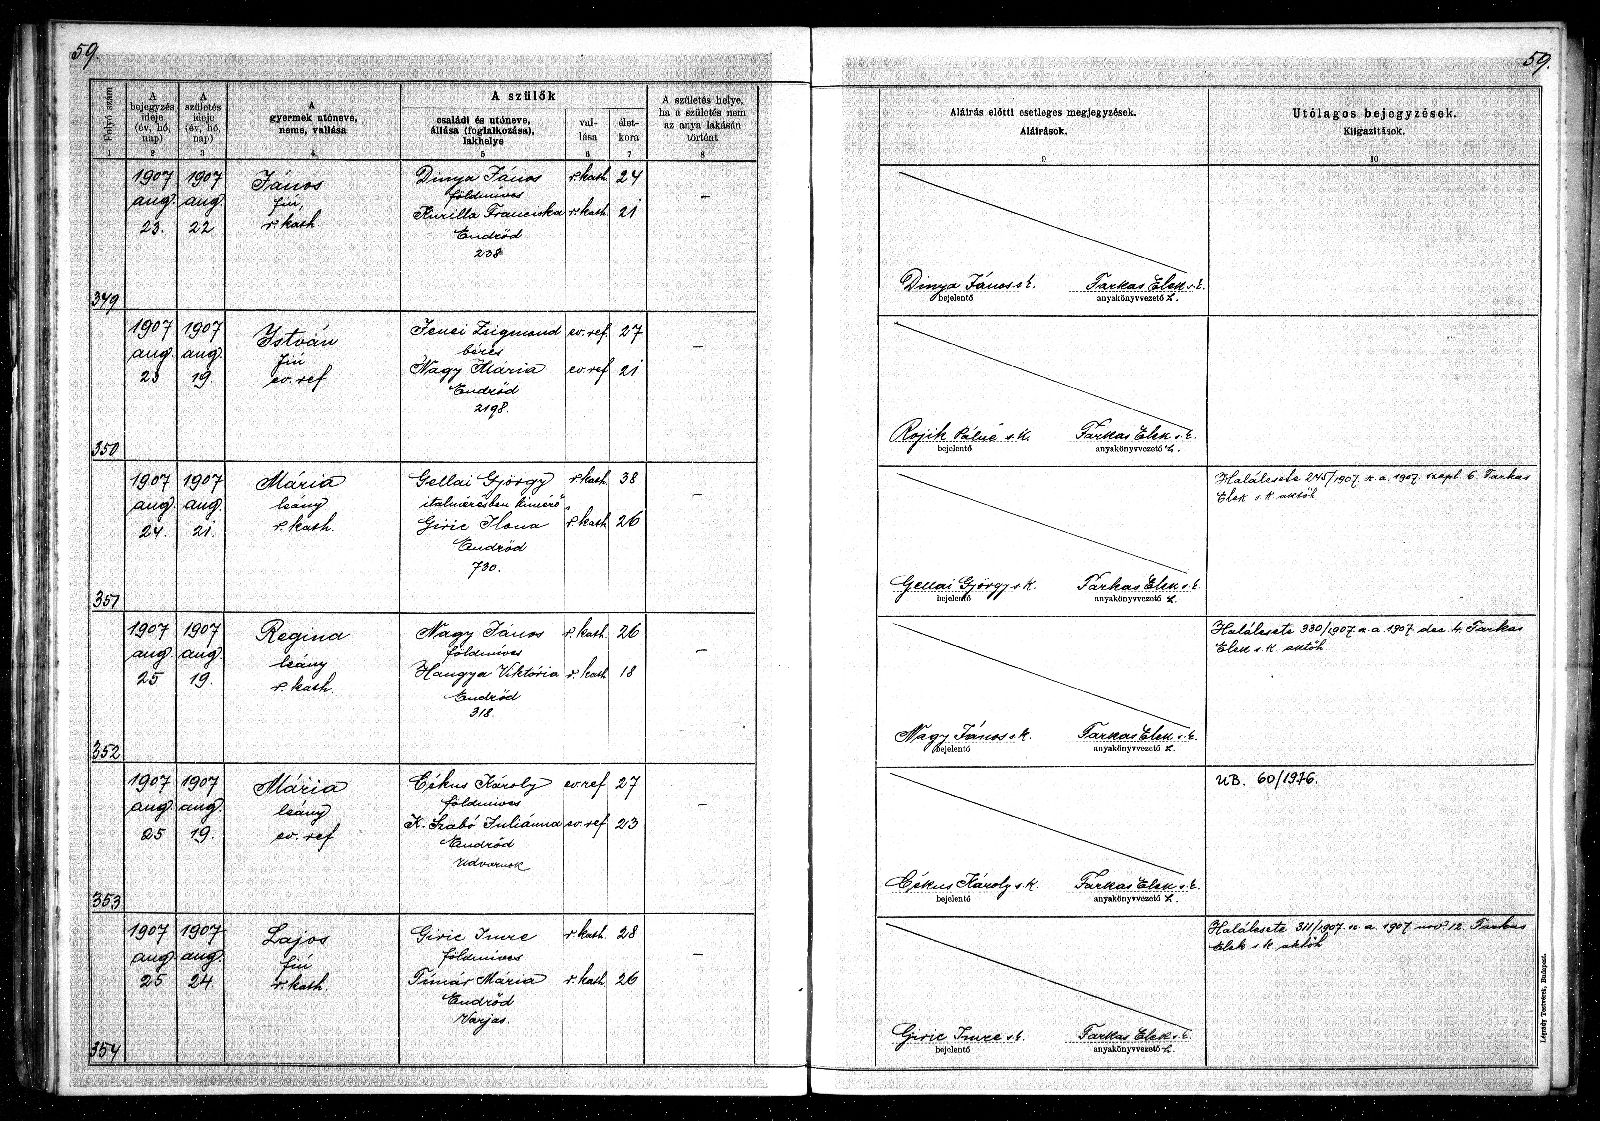 59.
59.
Folyó szám
A bejegyzés ideje (év, hó, nap)
A születés ideje (év, hó, nap)
A gyermek utóneve, neme, vallása
A szülők
családi és utóneve, állása (foglalkozása), lakhelye
vallása
életkora
A születés helye, ha a születés nem az anya lakásán történt
Aláírás előtti esetleges megjegyzések.
Aláírások.
Utólagos bejegyzések.
Kiigazítások.
1 2 3 4 5 6 7 8 9 10
349
1907 aug. 23.
1907 aug. 22
János
fiú,
r. kath
Dinya János r. kath. 24
földmíves
Kurilla Franciska r. kath. 21
Endrőd
238
–
Dinya János s.k. Farkas Elek s.k.
bejelentő anyakönyvvezető h.
350
1907 aug. 23
1907 aug. 19.
István
fiú
ev. ref
Jenei Zsigmond ev. ref. 27
béres
Nagy Mária ev. ref 21
Endrőd
2198.
–
Rojik Pálné s.k. Farkas Elek s.k.
bejelentő anyakönyvvezető h.
351
1907 aug. 24.
1907 aug. 21.
Mária
leány
r. kath.
Gellai György r. kath. 38
italmérésben kimérő
Giric Ilona r. kath. 26
Endrőd
730.
–
Gellai György s.k. Farkas Elek s.k.
bejelentő anyakönyvvezető h.
Halálesete 245/1907. n. a. 1907. szept. 6. Farkas
Elek s.k. aktöh
352
1907 aug. 25
1907 aug. 19.
Regina
leány
r. kath.
Nagy János r. kath. 26
földmíves
Hangya Viktória r. kath. 18
Endrőd
318.
–
Nagy János s.k. Farkas Elek s.k.
bejelentő anyakönyvvezető h.
Halálesete 330/1907. n. a. 1907. dec. 4. Farkas
Elek s.k. aktöh
353
1907 aug. 25
1907 aug. 19.
Mária
leány
ev. ref
Cékus Károly ev. ref 27
földmíves
K. Szabó Juliánna ev. ref 23
Endrőd
Udvarnok
–
Cékus Károly s.k. Farkas Elek s.k.
bejelentő anyakönyvvezető h.
UB. 60/1976.
354
1907 aug. 25
1907 aug. 24.
Lajos
fiú
r. kath.
Giric Imre r. kath. 28
földmíves
Tímár Mária r. kath. 26
Endrőd
Varjas.
–
Giric Imre s.k. Farkas Elek s.k.
bejelentő anyakönyvvezető h.
Halálesete 311/1907. n. a. 1907. nov. 12. Farkas
Elek s.k. aktöh
Légrády Testvérek, Budapest.